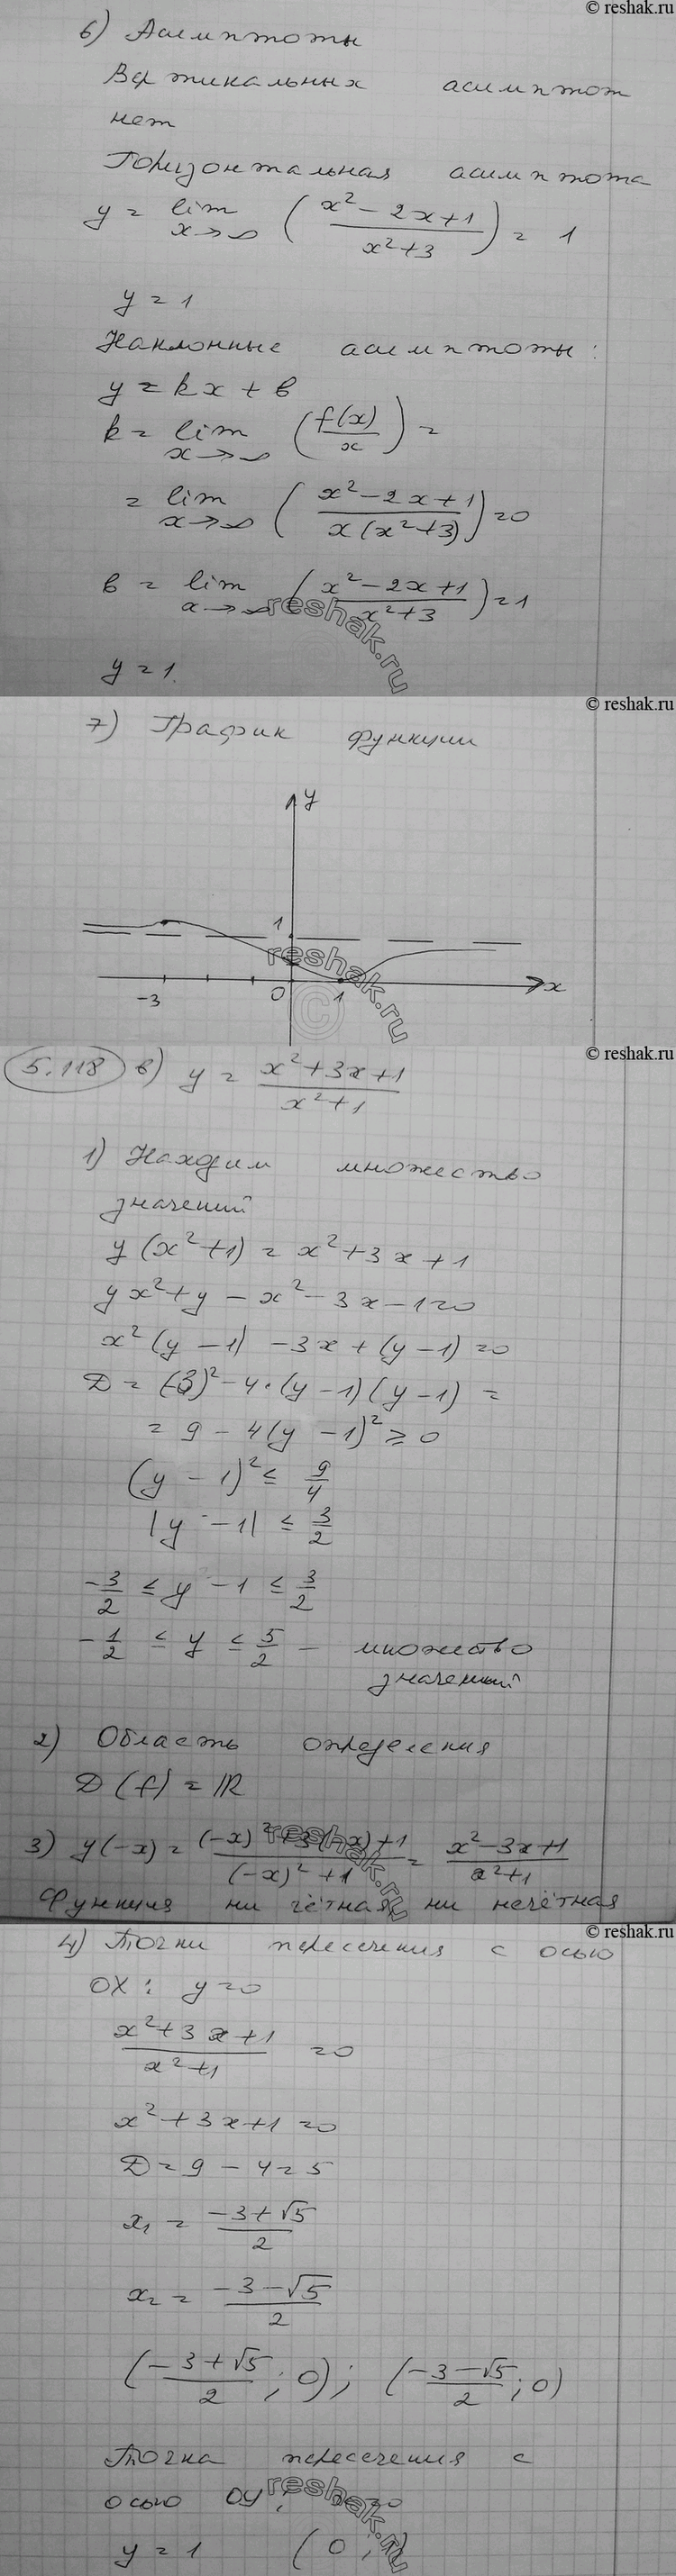 © reshak.ru
6) Асимптоты
Вертикальных асимптот
нет
Горизонтальная асимптота
y = lim x→∞ ( (x² − 2x + 1) / (x² + 3) ) = 1
y = 1
Наклонные асимптоты:
y = kx + b
k = lim x→∞ ( f(x) / x ) =
= lim x→∞ ( (x² − 2x + 1) / (x(x² + 3)) ) = 0
b = lim x→∞ ( (x² − 2x + 1) / (x² + 3) ) = 1
reshak.ru
y = 1.
© reshak.ru
7) График функции
y
1
reshak.ru
−3 0 1 x
©
© reshak.ru
5.118 в) y = (x² + 3x + 1) / (x² + 1)
1) Находим множество
значений
y(x² + 1) = x² + 3x + 1
yx² + y − x² − 3x − 1 = 0
x²(y − 1) − 3x + (y − 1) = 0
D = (−3)² − 4·(y − 1)(y − 1) =
= 9 − 4(y − 1)² ≥ 0
(y − 1)² ≤ 9/4
|y − 1| ≤ 3/2
−3/2 ≤ y − 1 ≤ 3/2
−1/2 ≤ y ≤ 5/2 — множество
значений
2) Область определения
D(f) = ℝ
3) y(−x) = ((−x)² + 3(−x) + 1) / ((−x)² + 1) = (x² − 3x + 1) / (x² + 1)
reshak.ru
Функция ни чётная ни нечётная
© reshak.ru
4) Точки пересечения с осью
OX: y = 0
(x² + 3x + 1) / (x² + 1) = 0
x² + 3x + 1 = 0
D = 9 − 4 = 5
x₁ = (−3 + √5) / 2
x₂ = (−3 − √5) / 2
((−3 + √5) / 2; 0); ((−3 − √5) / 2; 0)
Точка пересечения с
осью OY: = 0
reshak.ru
y = 1 (0;